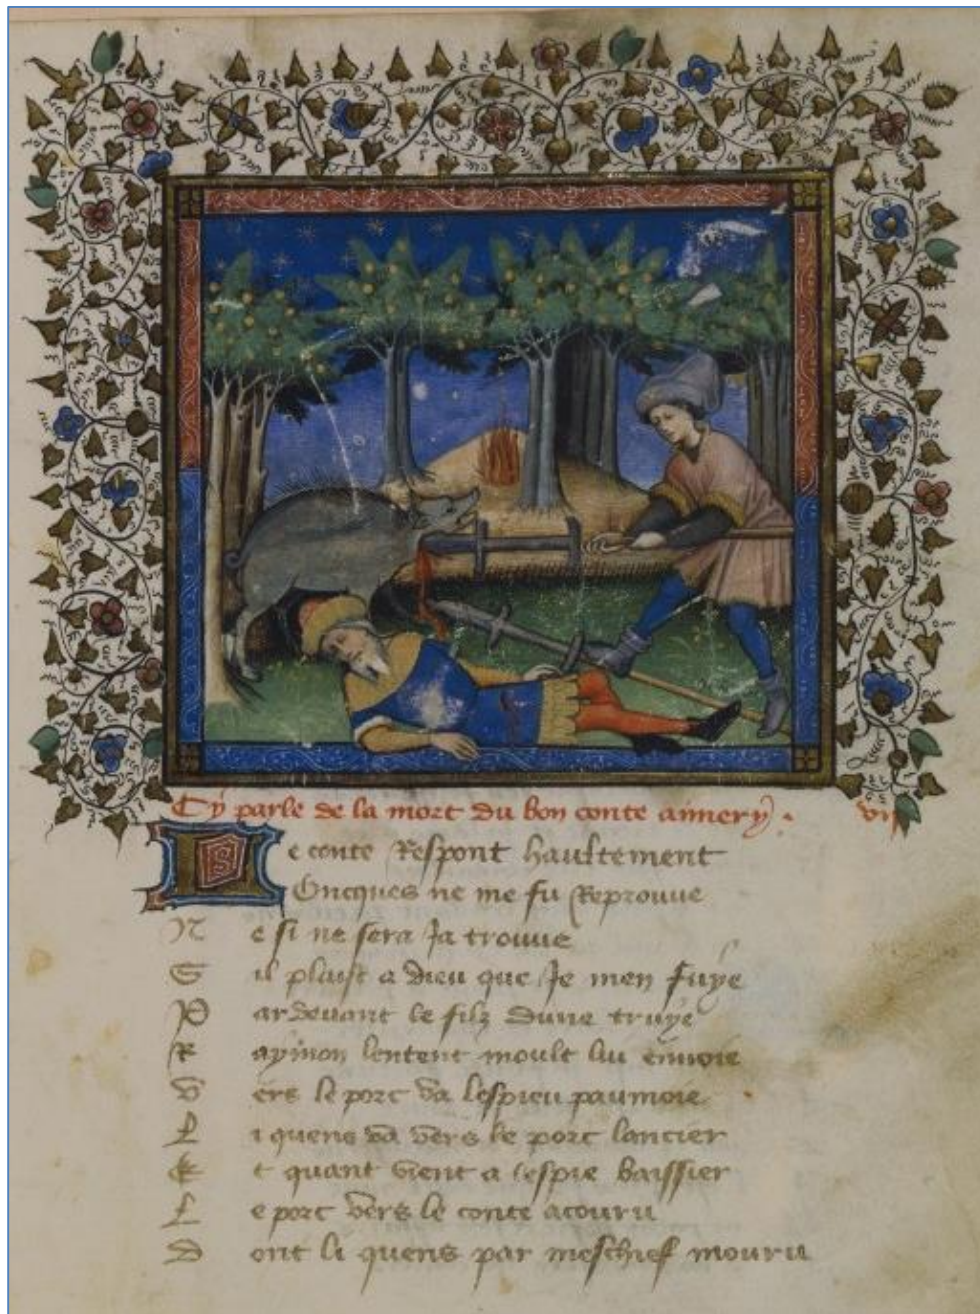 Cy parle de la mort du bon conte aimery . vij
Le conte Respont haultement
Oncques ne me fu Reprouve
Ne si ne sera Ja trouve
Sil plaist a dieu que Je men fuye
Pardevant le filz dune truye
Raymon lentent moult lui ennoie
Vers le porc va lespieu paumoie
Li quens va vers le porc lancier
Et quant vient a lespie baissier
Le porc vers le conte acouru
Dont li quens par meschief mouru